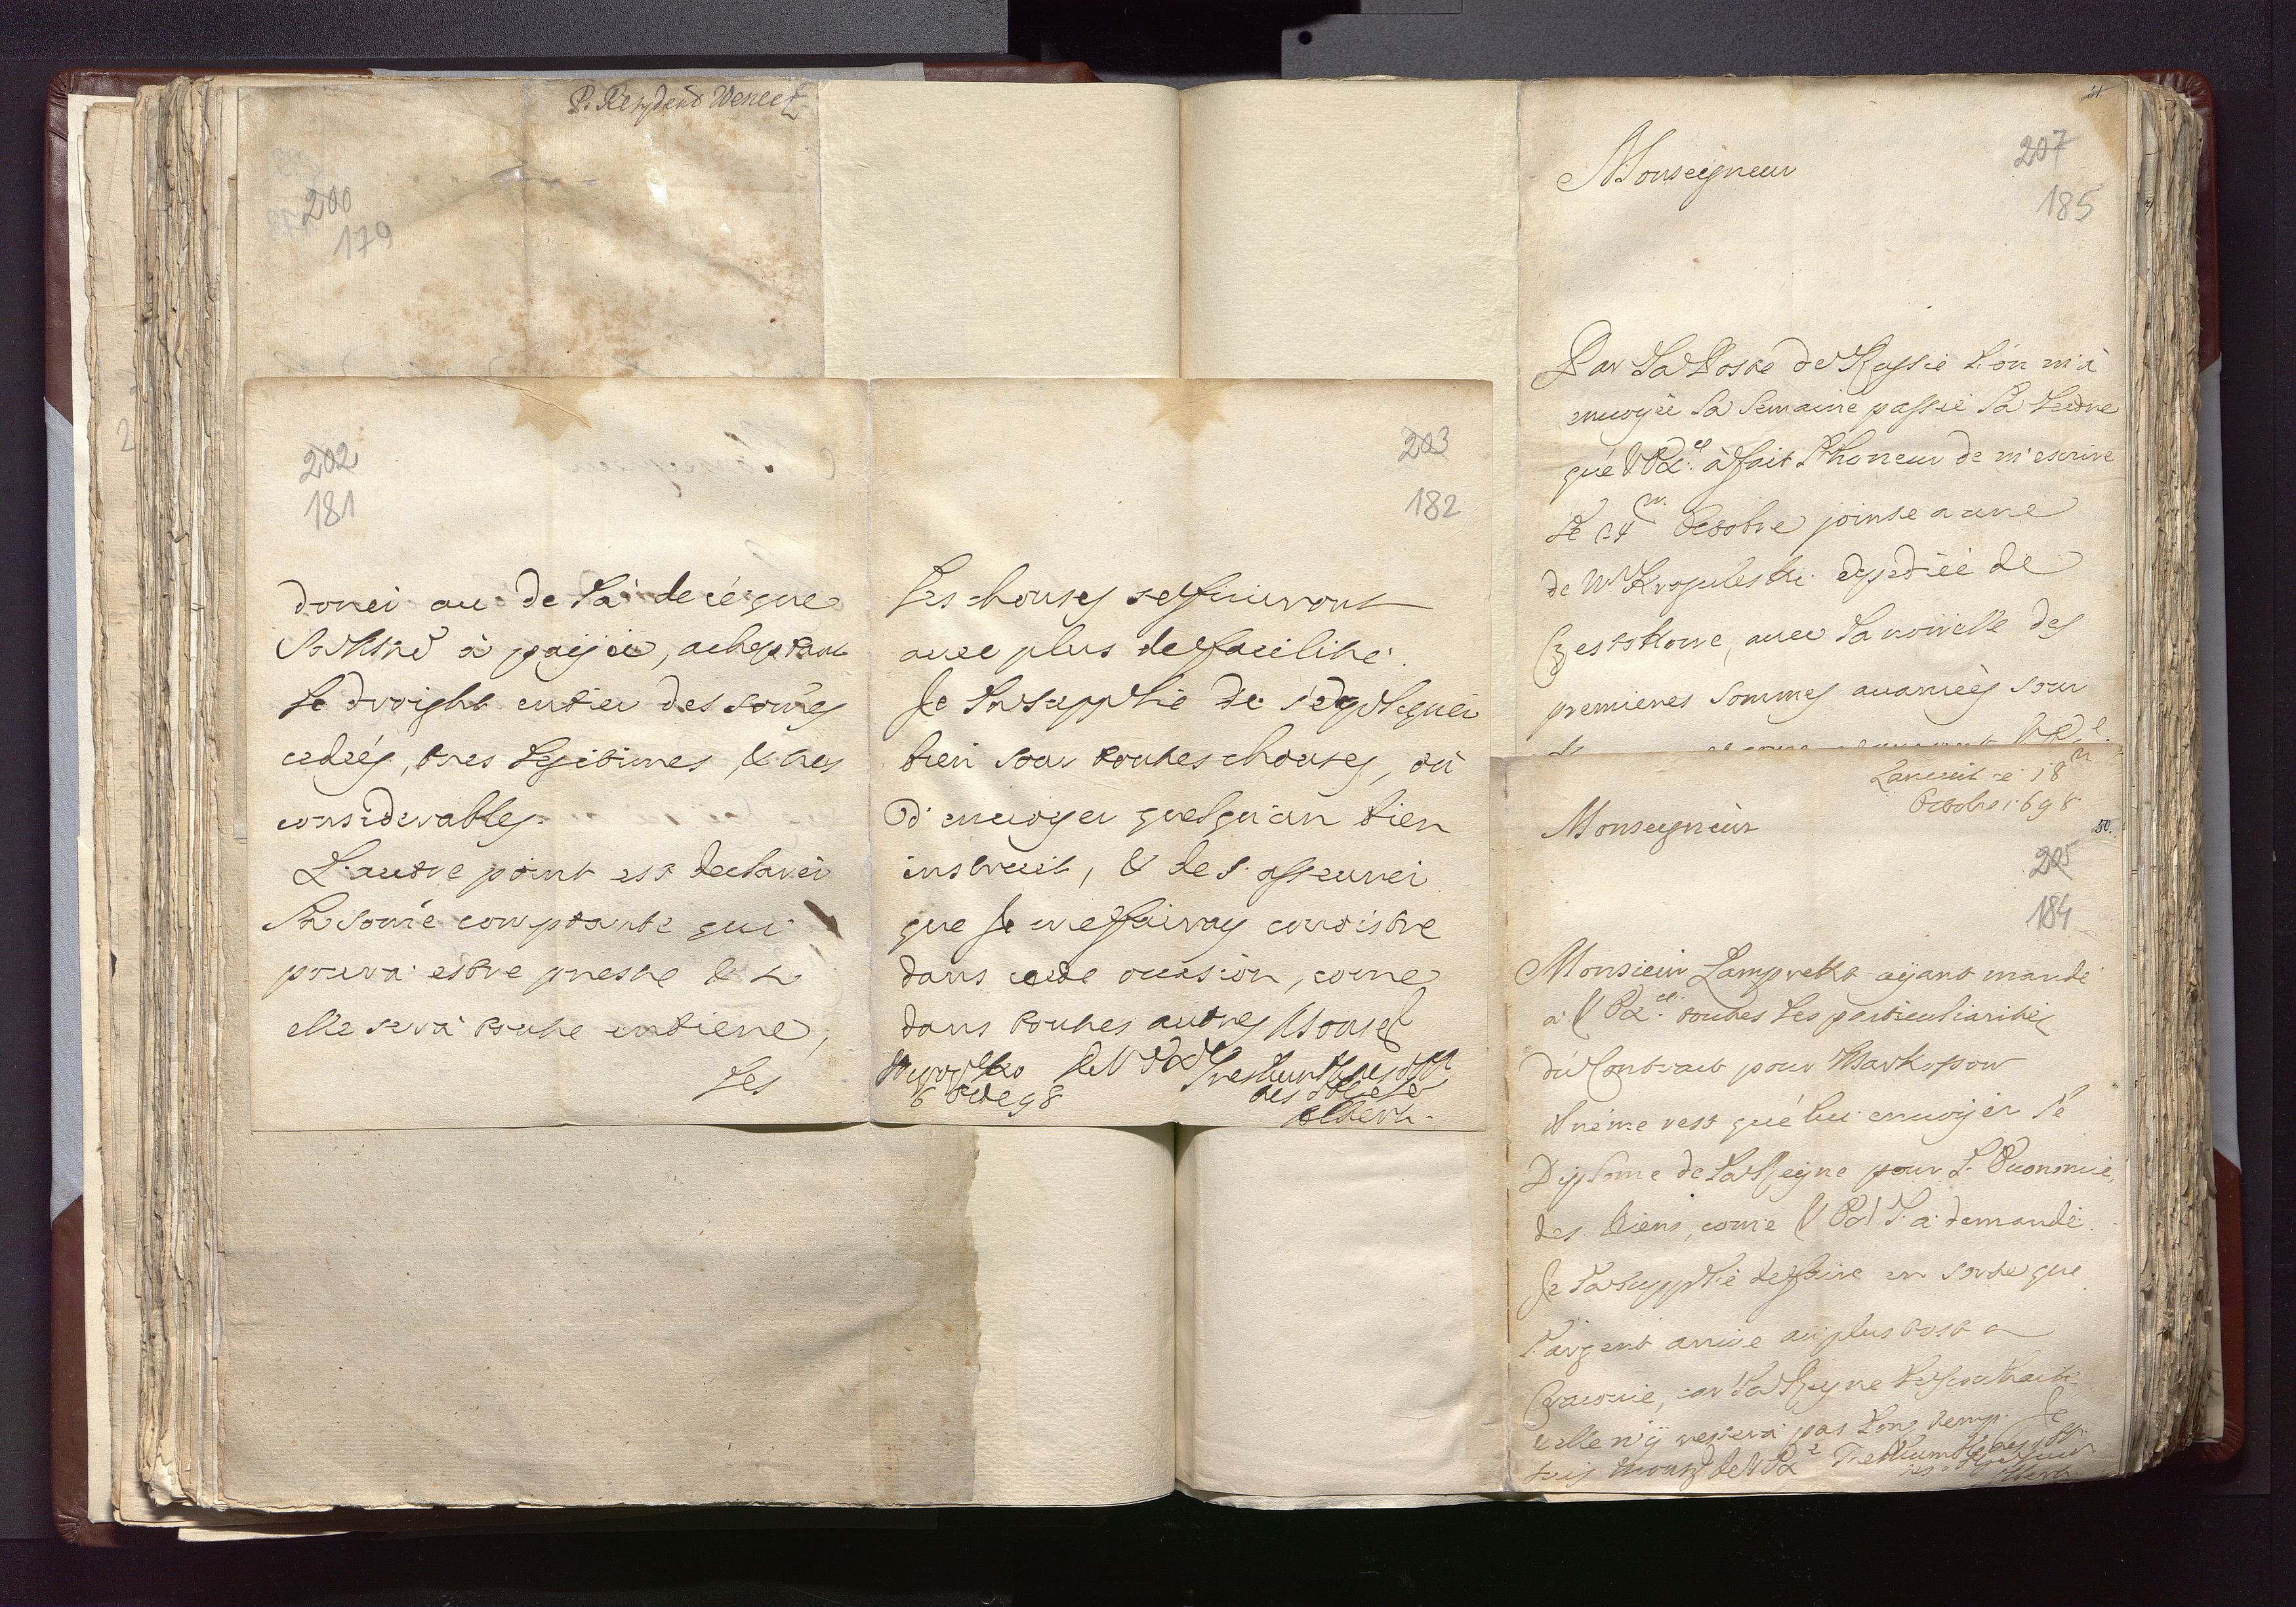 P. Resydent Wenecz
200
179
202
181
doner au de la de ce que
à payer, acheptant
le droight entier des somes
cedeés, tres legitimes, & tres
considerables.
L'autre point est declarer
la somé comptante qui
poura estre preste & si
elle sera toute entiere,
les
203
182
les chouses se fairont
avec plus de facilité.
Je la supplie de s'expliquer
bien sour toutes chouses, où
d'envoyer quelqu'un bien
instruit, & de s'asseurer
que je me fairay conoistre
dans cette ocasion, come
dans toutes autres Monsg
de V Ex
6 98
51.
207
185
Monseigneur
Par la Poste de Russie l'on m'à
envoyée la semaine passée la lettre
que V Ex. à fait l'honeur de m'escrire
le 24 Octobre jointe a une
de Mr Kroguleski expediée de
Czestokowe, avec la nouvelle des
premieres sommes avanceés sour
Zamost ce 18
Octobre 1698
Monseigneur
50.
205
184
Monsieur Lamprekt ayant mandé
a V Ex. toutes les particularités
du Contract pour Markopow
il ne me rest que luy envoyer le
Diplome de la Reyne pour l'Economie,
des biens, come V Ex l'a demandé.
Je la supplie de faire en sorte que
l'argent arrive au plus tost a
Cracovie, car la Reyne le souhaite
& elle n'y restera pas long temp. Je
suis Monsg de V Ex